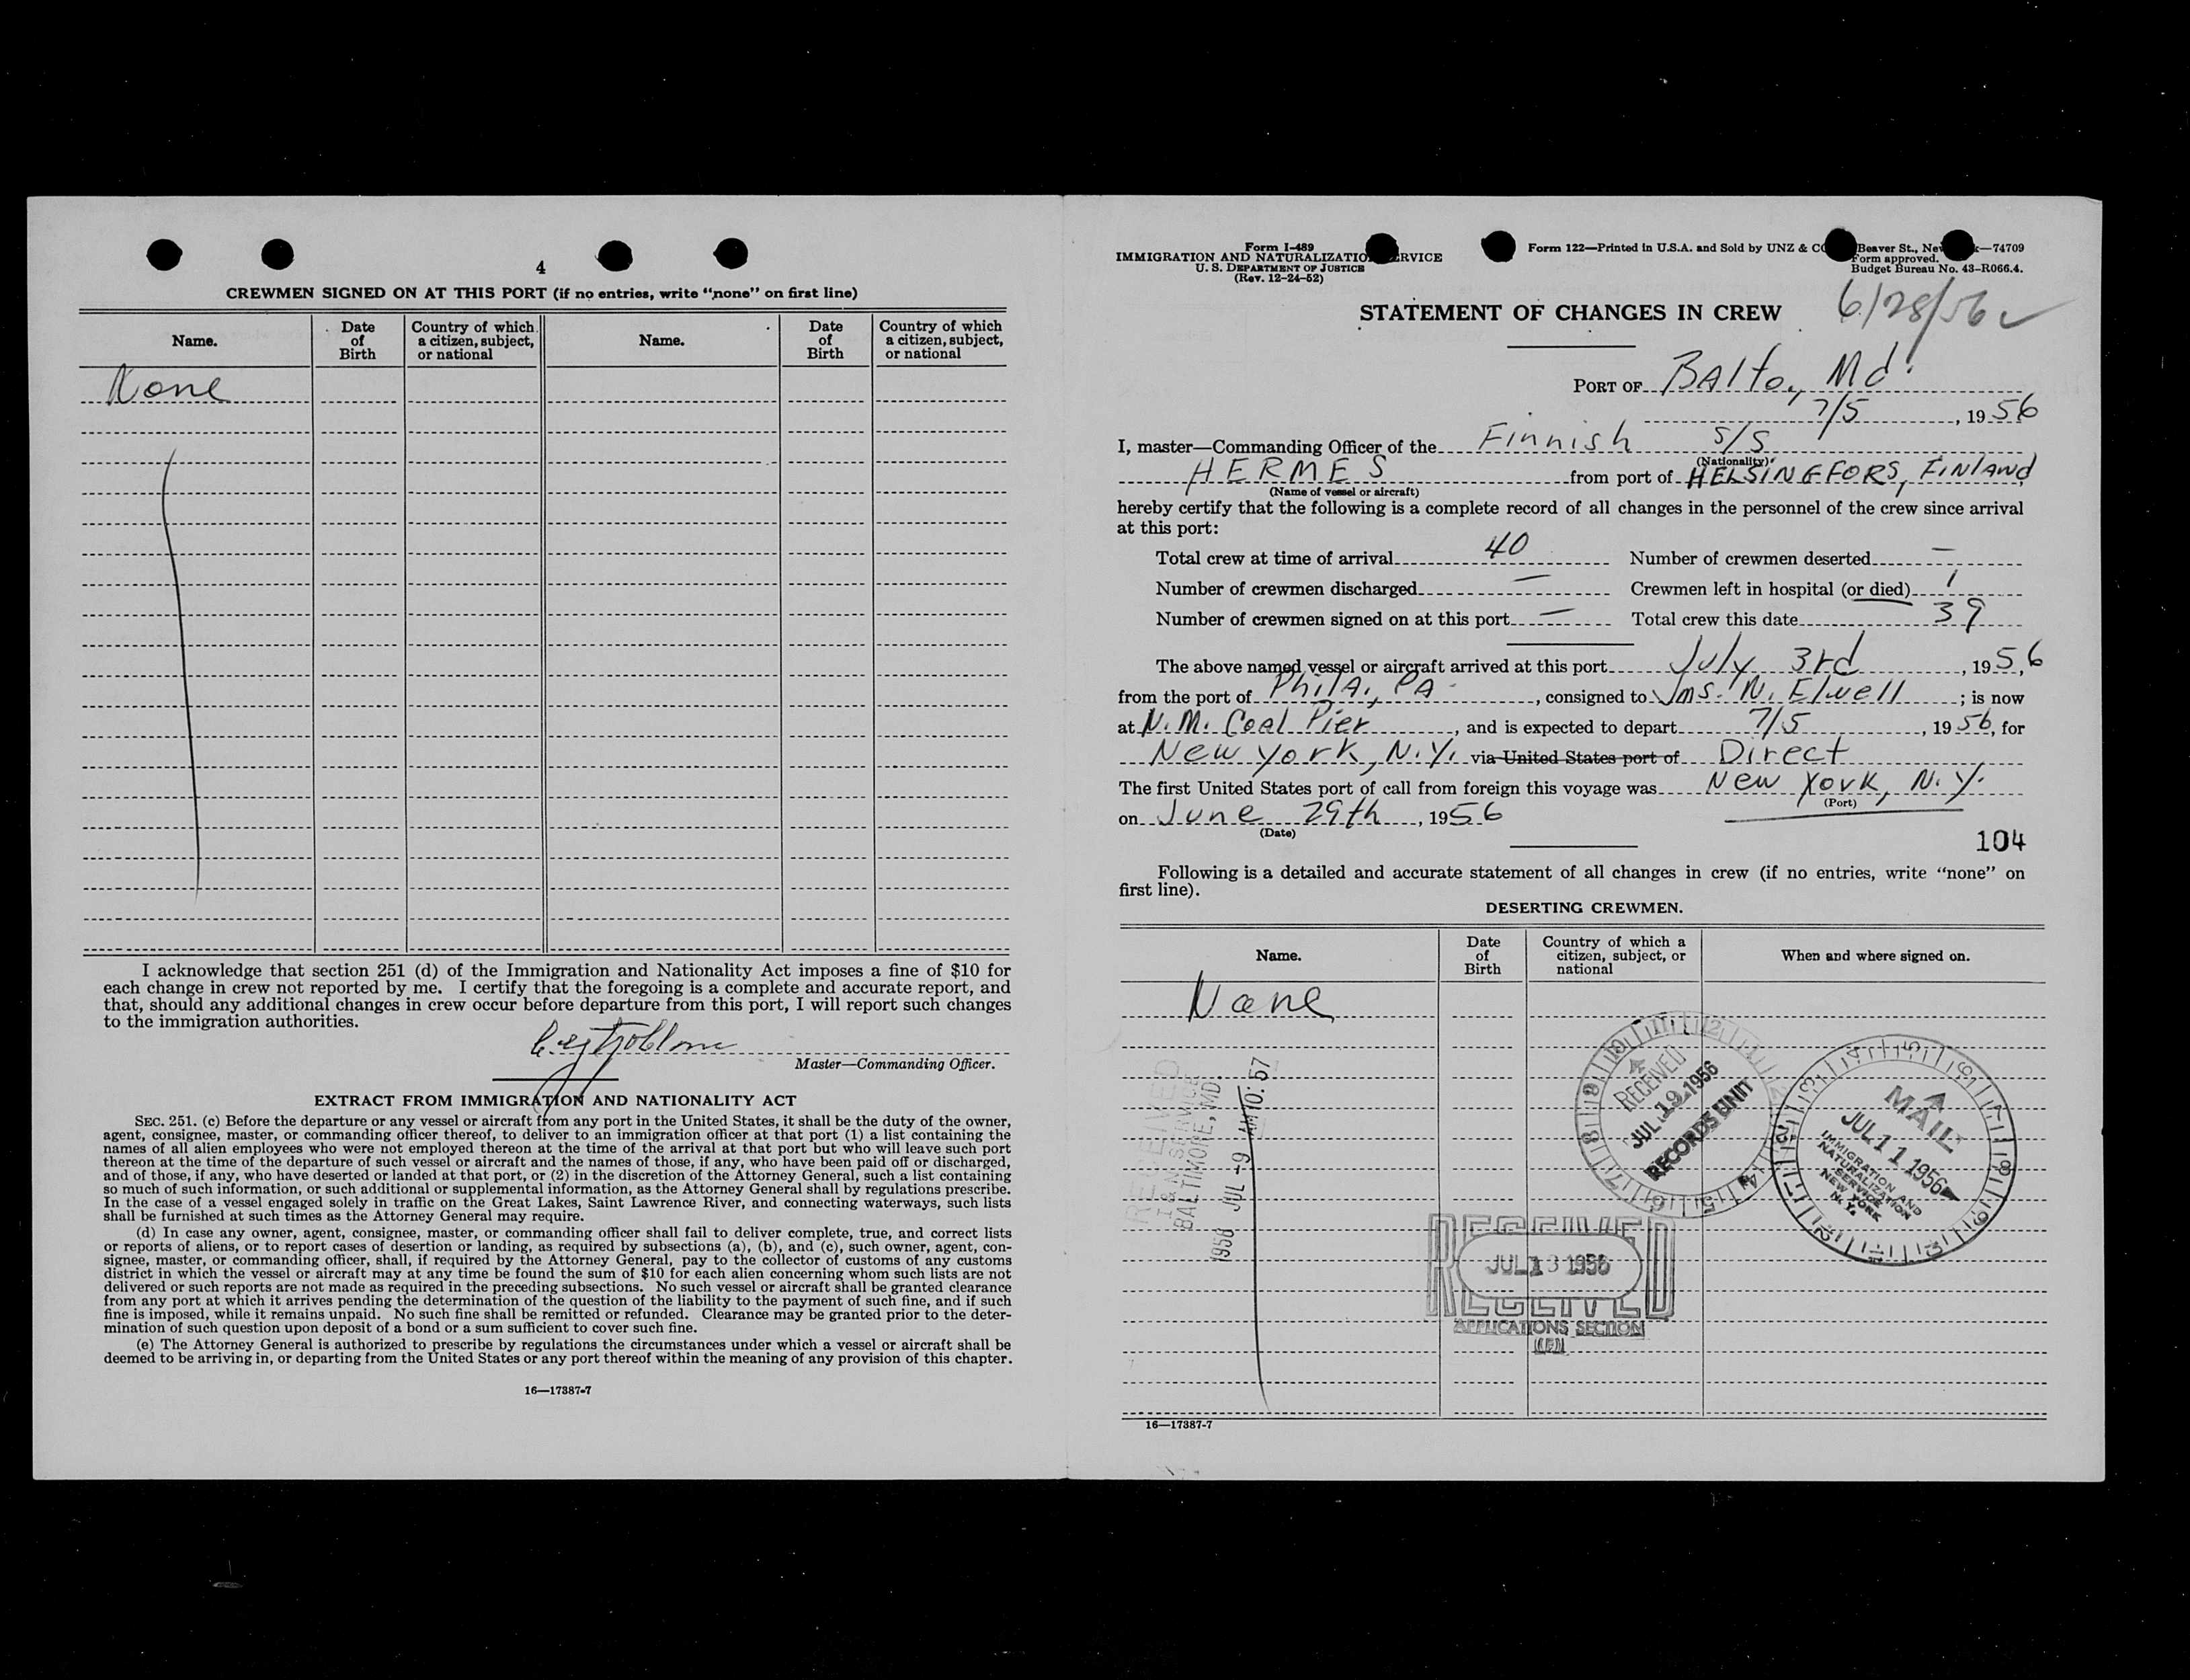 4
CREWMEN SIGNED ON AT THIS PORT (if no entries, write "none" on first line)
Name. Date of Birth Country of which a citizen, subject, or national Name. Date of Birth Country of which a citizen, subject, or national
None
I acknowledge that section 251 (d) of the Immigration and Nationality Act imposes a fine of $10 for
each change in crew not reported by me. I certify that the foregoing is a complete and accurate report, and
that, should any additional changes in crew occur before departure from this port, I will report such changes
to the immigration authorities.
Master—Commanding Officer.
EXTRACT FROM IMMIGRATION AND NATIONALITY ACT
SEC. 251. (c) Before the departure or any vessel or aircraft from any port in the United States, it shall be the duty of the owner,
agent, consignee, master, or commanding officer thereof, to deliver to an immigration officer at that port (1) a list containing the
names of all alien employees who were not employed thereon at the time of the arrival at that port but who will leave such port
thereon at the time of the departure of such vessel or aircraft and the names of those, if any, who have been paid off or discharged,
and of those, if any, who have deserted or landed at that port, or (2) in the discretion of the Attorney General, such a list containing
so much of such information, or such additional or supplemental information, as the Attorney General shall by regulations prescribe.
In the case of a vessel engaged solely in traffic on the Great Lakes, Saint Lawrence River, and connecting waterways, such lists
shall be furnished at such times as the Attorney General may require.
(d) In case any owner, agent, consignee, master, or commanding officer shall fail to deliver complete, true, and correct lists
or reports of aliens, or to report cases of desertion or landing, as required by subsections (a), (b), and (c), such owner, agent, con-
signee, master, or commanding officer, shall, if required by the Attorney General, pay to the collector of customs of any customs
district in which the vessel or aircraft may at any time be found the sum of $10 for each alien concerning whom such lists are not
delivered or such reports are not made as required in the preceding subsections. No such vessel or aircraft shall be granted clearance
from any port at which it arrives pending the determination of the question of the liability to the payment of such fine, and if such
fine is imposed, while it remains unpaid. No such fine shall be remitted or refunded. Clearance may be granted prior to the deter-
mination of such question upon deposit of a bond or a sum sufficient to cover such fine.
(e) The Attorney General is authorized to prescribe by regulations the circumstances under which a vessel or aircraft shall be
deemed to be arriving in, or departing from the United States or any port thereof within the meaning of any provision of this chapter.
16—17387-7
Form I-489
IMMIGRATION AND NATURALIZATIO RVICE
U. S. DEPARTMENT OF JUSTICE
(Rev. 12-24-52)
Form 122—Printed in U.S.A. and Sold by UNZ & C Beaver St., Ne k—74709
Form approved.
Budget Bureau No. 43-R066.4.
6/28/56
STATEMENT OF CHANGES IN CREW
PORT OF Balto., Md.
7/5, 1956
I, master—Commanding Officer of the Finnish S/S
(Nationality)
HERMES from port of HELSINGFORS, FINLAND
(Name of vessel or aircraft)
hereby certify that the following is a complete record of all changes in the personnel of the crew since arrival
at this port:
Total crew at time of arrival 40 Number of crewmen deserted —
Number of crewmen discharged — Crewmen left in hospital (or died) 1
Number of crewmen signed on at this port — Total crew this date 39
The above named vessel or aircraft arrived at this port July 3rd, 1956
from the port of Phila., PA, consigned to Jms. N. Elwell; is now
at N.M. Coal Pier, and is expected to depart 7/5, 1956, for
New York, N.Y. via United States port of Direct
The first United States port of call from foreign this voyage was New York, N.Y.
(Port)
on June 29th, 1956
(Date)
104
Following is a detailed and accurate statement of all changes in crew (if no entries, write "none" on
first line).
DESERTING CREWMEN.
Name. Date of Birth Country of which a citizen, subject, or national When and where signed on.
None
RECEIVED
I & N SERVICE
BALTIMORE, MD.
1956 JUL -9 AM 10:57
RECEIVED
JUL 19 1956
RECORDS UNIT
MAIL
JUL 11 1956
IMMIGRATION AND
NATURALIZATION
SERVICE
NEW YORK
N.Y.
RECEIVED
JUL 13 1956
RECEIVED
APPLICATIONS SECTION
16—17387-7